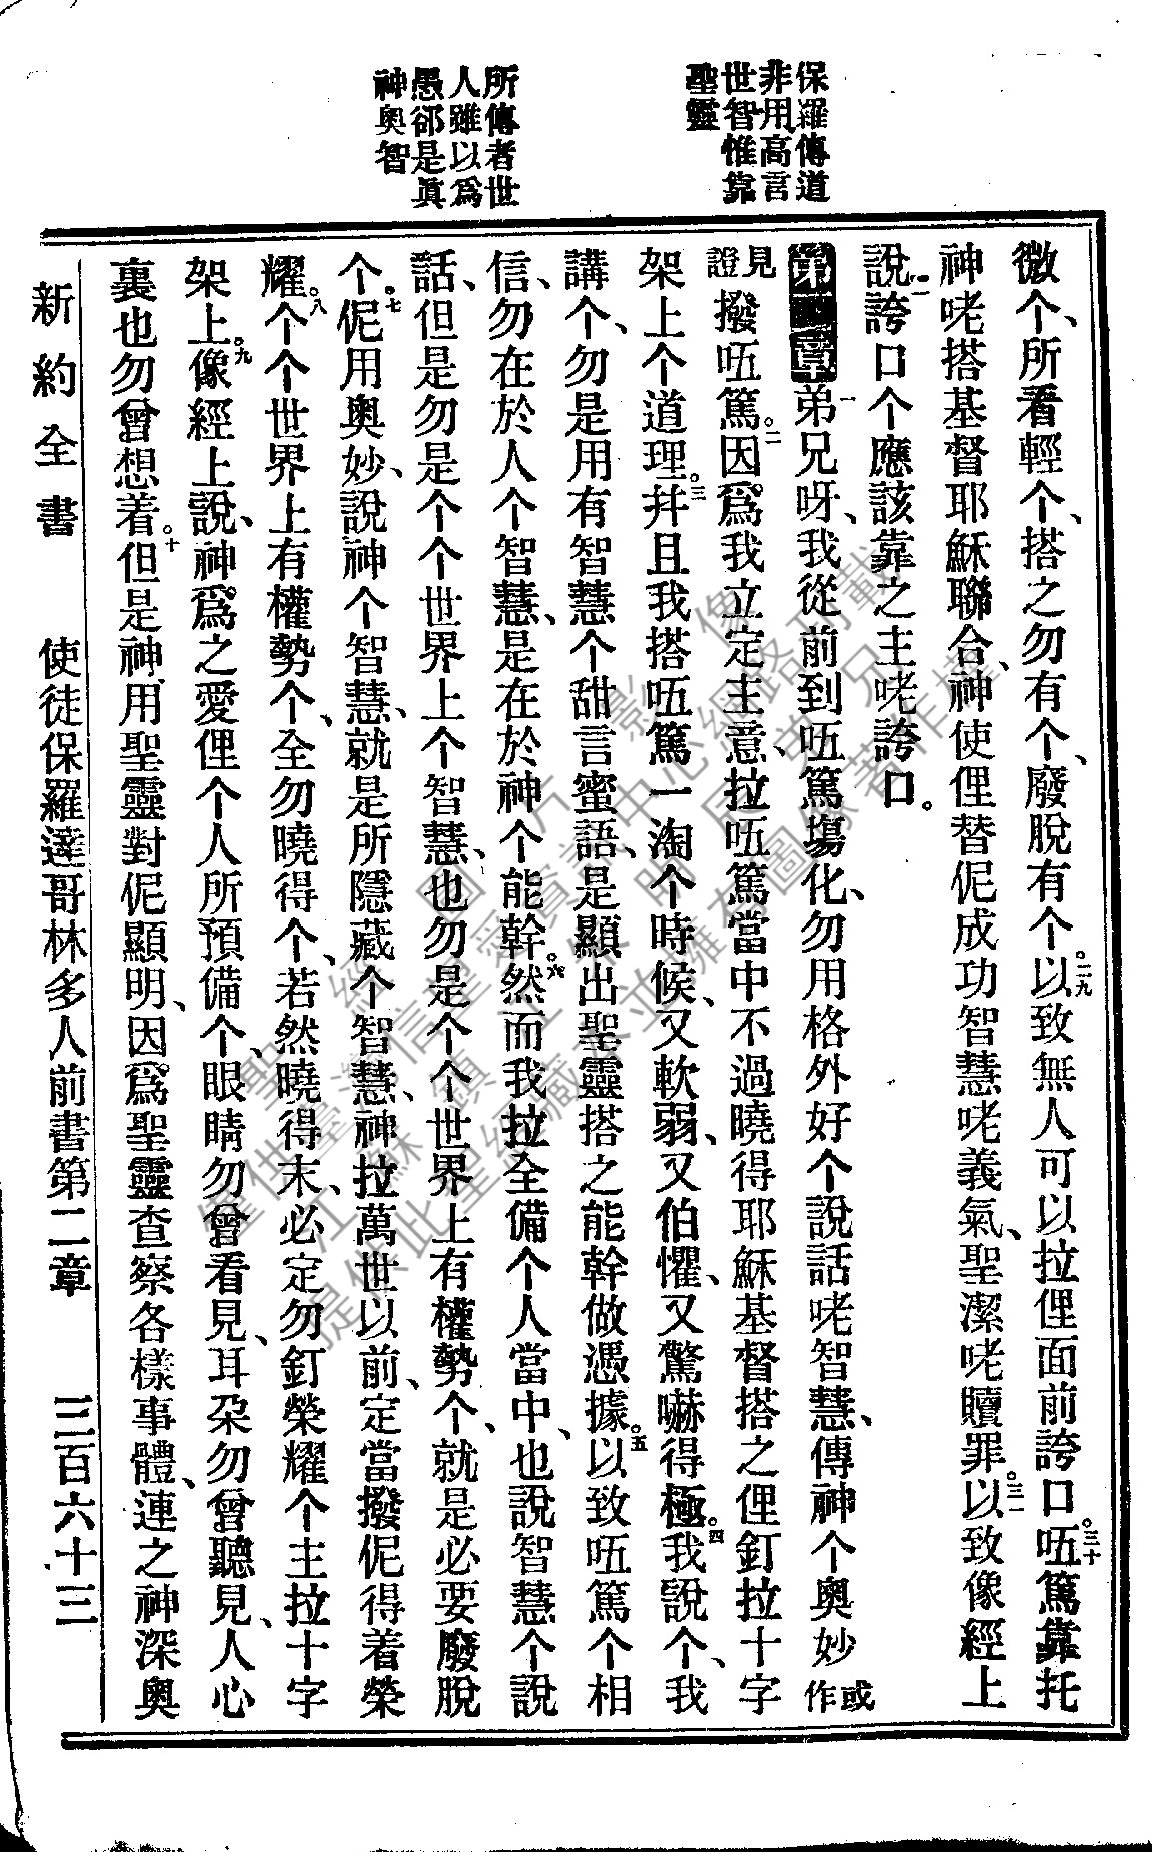 保羅傳道
非用高言
世智惟靠
聖靈
所傳者世
人雖以爲
愚郤是眞
神奥智
微个、所看輕个、搭之勿有个、廢脫有个。二九以致無人可以拉俚面前誇口。三十𠲔篤靠托
神咾搭基督耶穌聯合、神使俚替伲成功智慧咾義氣、聖潔咾贖罪。三一以致像經上
說、誇口个應該靠之主咾誇口。
第二章 一弟兄呀、我從前到𠲔篤塲化、勿用格外好个說話咾智慧、傳神个奥妙或作
見證撥𠲔篤。二因爲我立定主意、拉𠲔篤當中不過曉得耶穌基督搭之俚釘拉十字
架上个道理。三幷且我搭𠲔篤一淘个時候、又軟弱、又怕懼、又驚嚇得極。四我說个、我
講个、勿是用有智慧个甜言蜜語、是顯出聖靈搭之能幹做憑據。五以致𠲔篤个相
信、勿在於人个智慧、是在於神个能幹。六然而我拉全備个人當中、也說智慧个說
話、但是勿是个个世界上个智慧、也勿是个个世界上有權勢个、就是必要廢脫
个。七伲用奥妙、說神个智慧、就是所隱藏个智慧、神拉萬世以前、定當撥伲得着榮
耀。八个个世界上有權勢个、全勿曉得个、若然曉得末、必定勿釘榮耀个主拉十字
架上。九像經上說、神爲之愛俚个人所預備个、眼睛勿曾看見、耳朶勿曾聽見、人心
裏也勿曾想着。十但是神用聖靈對伲顯明、因爲聖靈查察各樣事體、連之神深奥
新約全書 使徒保羅達哥林多人前書第二章 三百六十三
聖經圖片影像
僅供臺灣信望愛資訊中心網路刊載
提供此聖經藏本並擁有圖像著作權